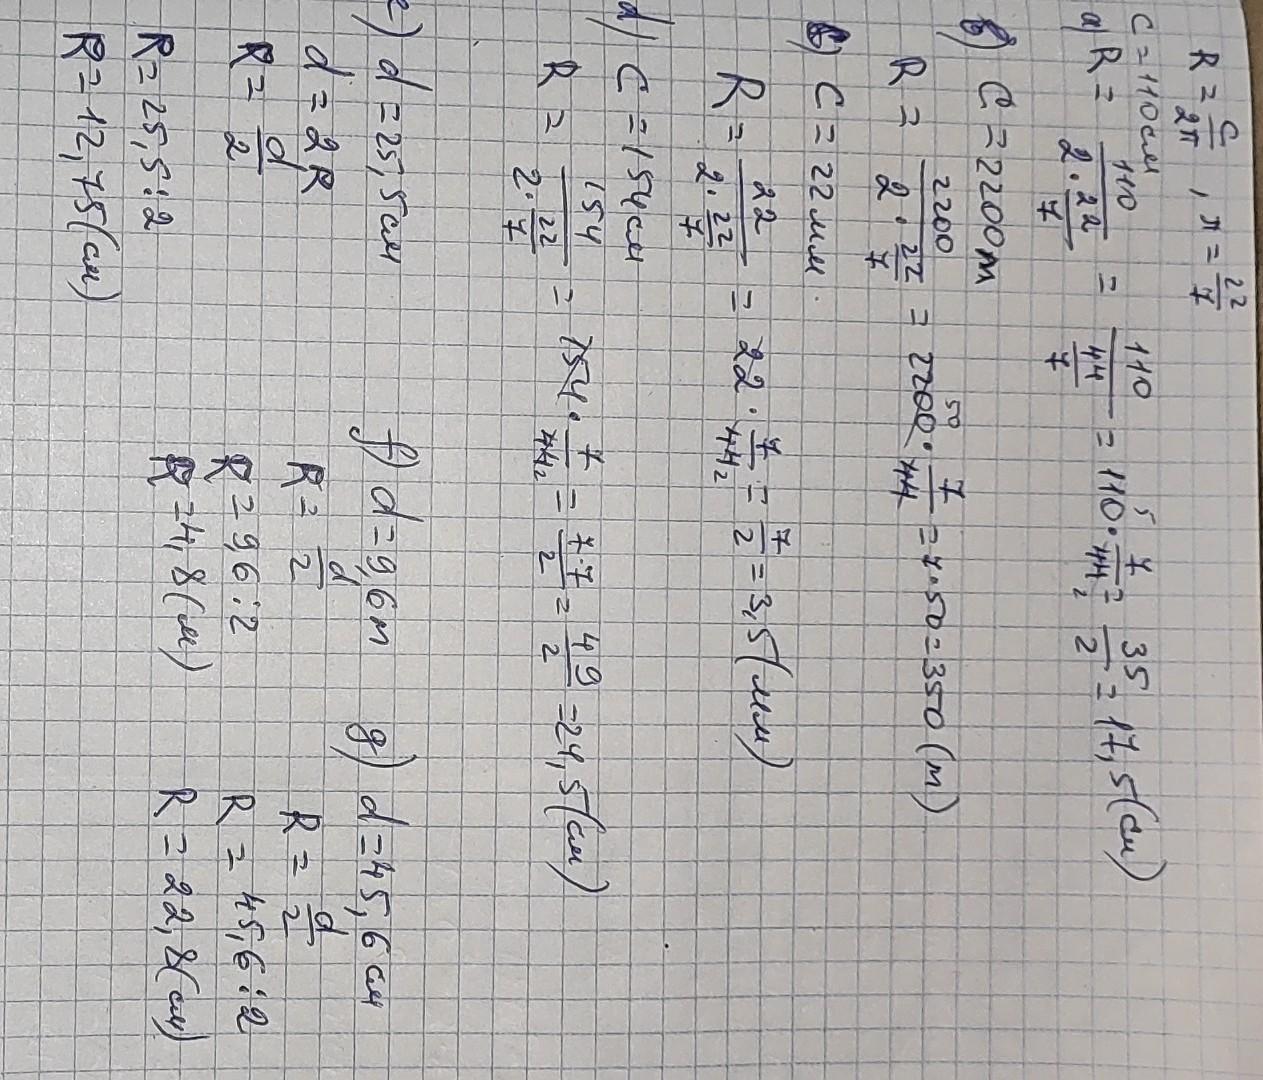 R = C/2π , π = 22/7
C = 110см
a) R = 110/(2 · 22/7) = 110/(44/7) = 110 5 · 7/44 2 = 35/2 = 17,5(см)
b) C = 2200м
R = 2200/(2 · 22/7) = 2200 50 · 7/44 = 7 · 50 = 350 (м)
C = 22мм.
R = 22/(2 · 22/7) = 22 · 7/44 2 = 7/2 = 3,5(мм)
d) C = 154см
R = 154/(2 · 22/7) = 154 · 7/44 2 = 7·7/2 = 49/2 = 24,5(см)
e) d = 25,5см
d = 2R
R = d/2
R = 25,5 : 2
R = 12,75(см)
f) d = 9,6м
R = d/2
R = 9,6 : 2
R = 4,8(м)
g) d = 45,6 см
R = d/2
R = 45,6 : 2
R = 22,8(см)